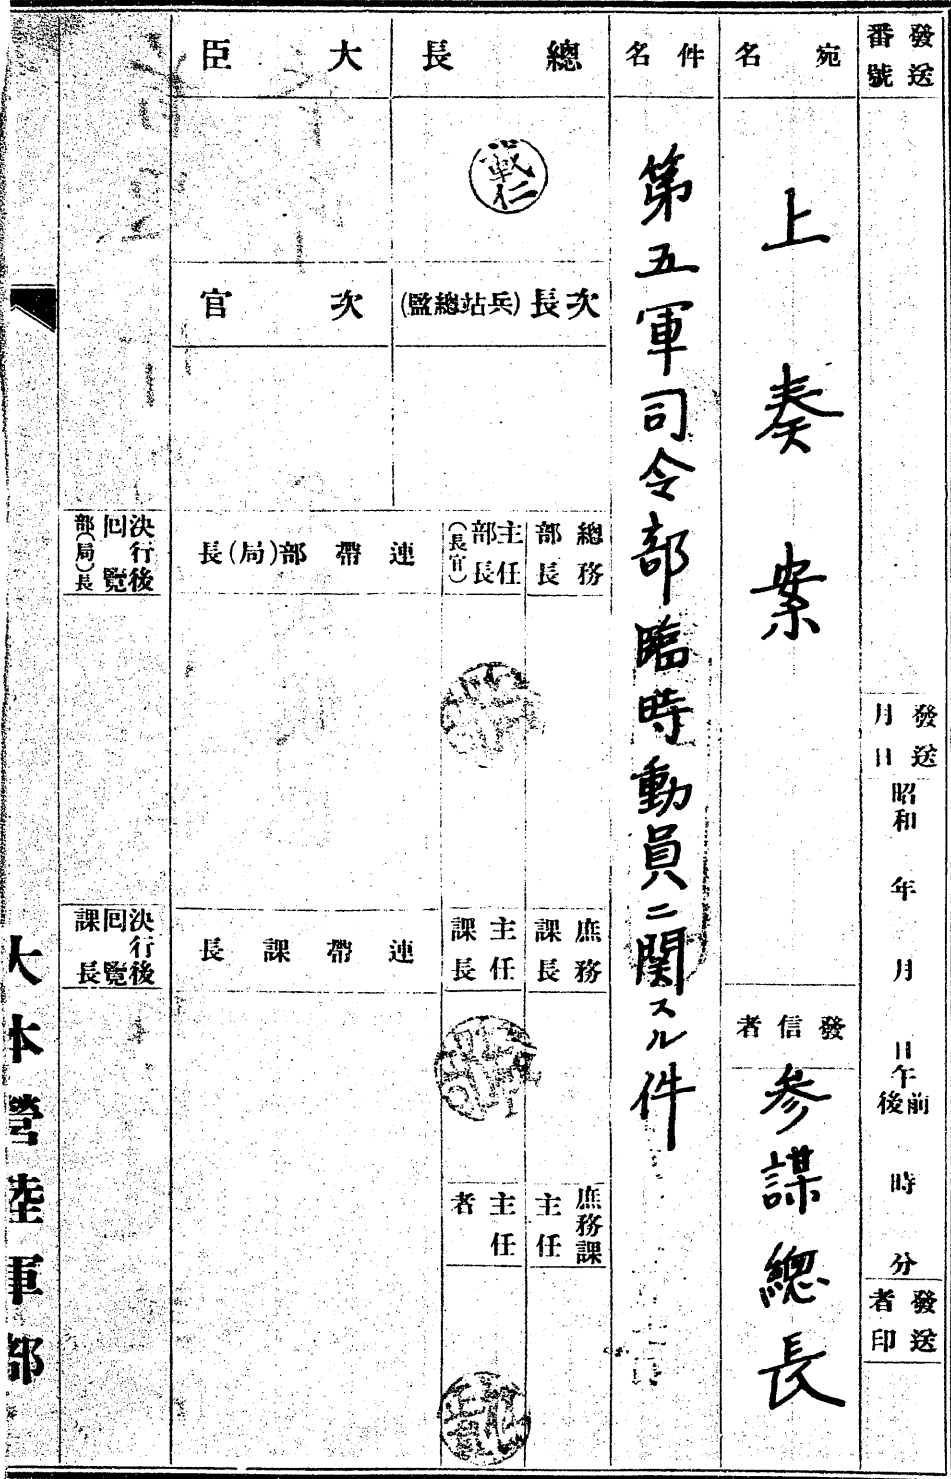 發送番號
發送月日
昭和 年 月 日 午前後 時 分
發送者印
宛名
上奏案
發信者
参謀總長
件名
第五軍司令部臨時動員ニ関スル件
總長
載仁
次長(兵站總監)
總務部長
主任部長(長官)
庶務課長
主任課長
庶務課主任
主任者
大臣
次官
連帶部(局)長
連帶課長
決行後回覽部(局)長
決行後回覽課長
大本營陸軍部